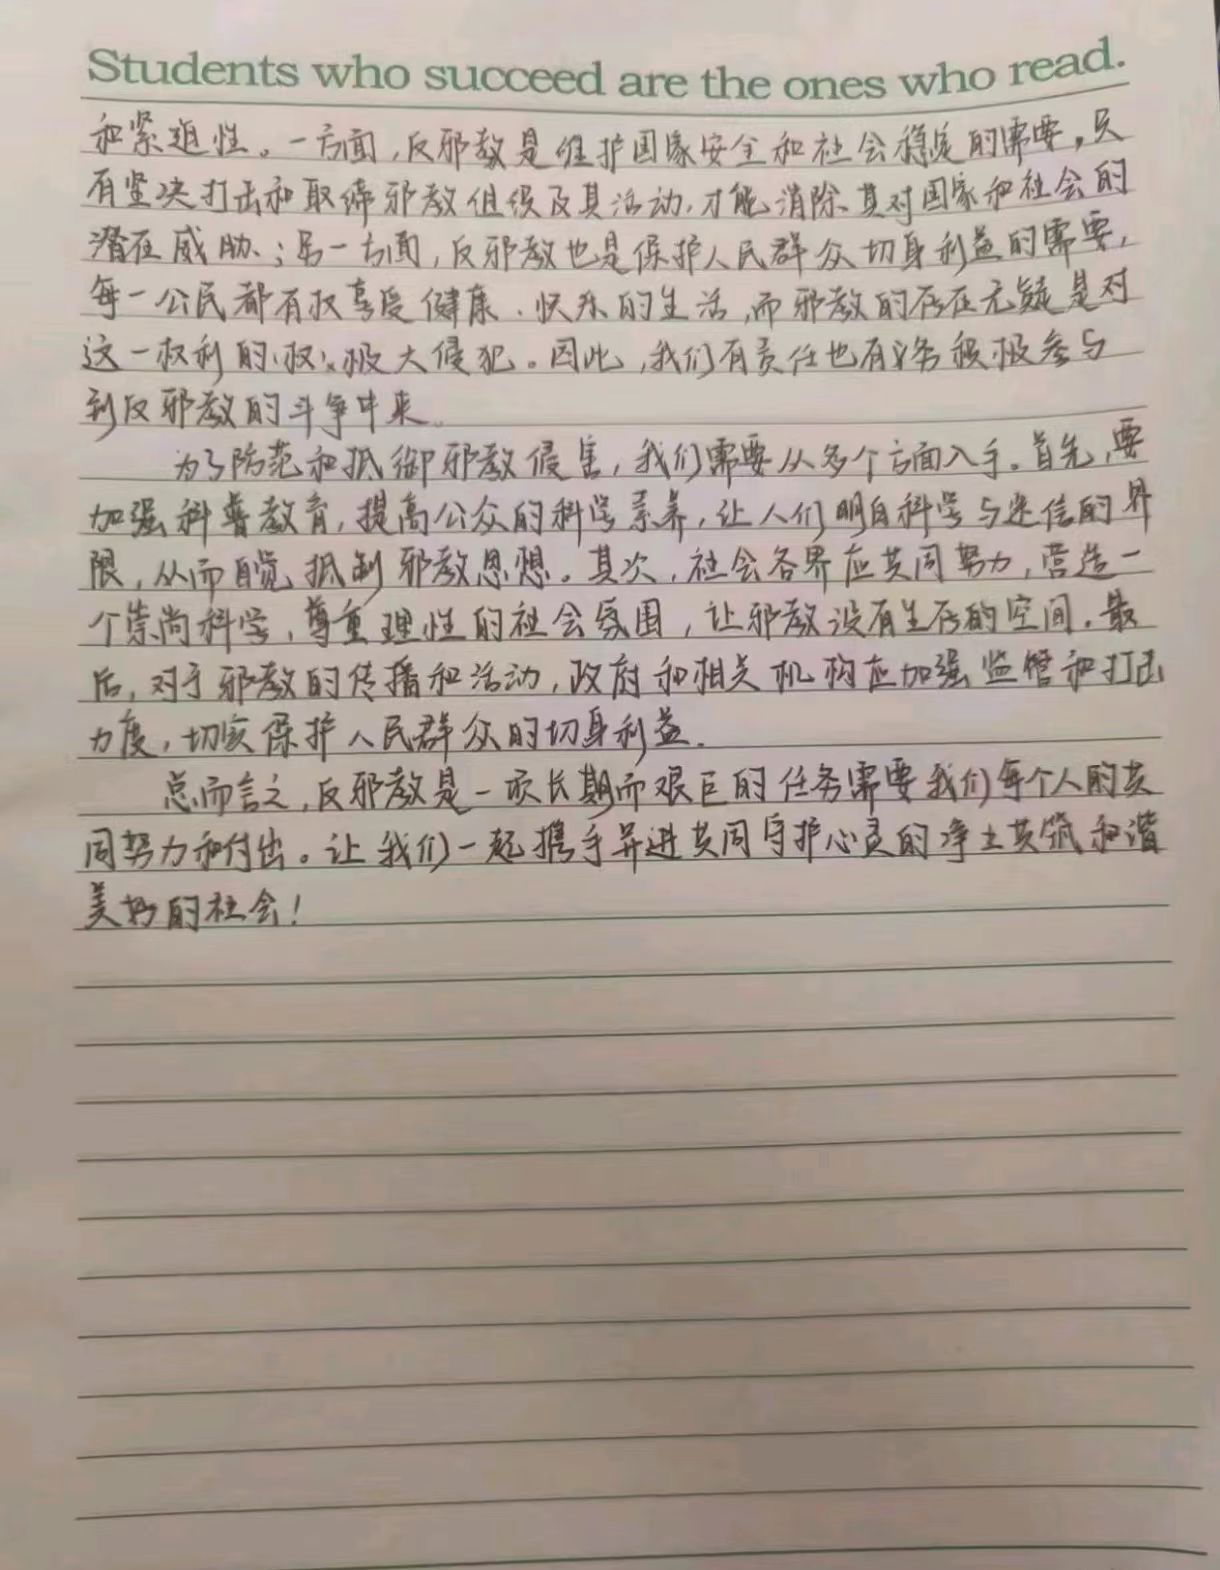 Students who succeed are the ones who read.
和紧迫性。一方面,反邪教是维护国家安全和社会稳定的需要,只
有坚决打击和取缔邪教组织及其活动,才能消除其对国家和社会的
潜在威胁;另一方面,反邪教也是保护人民群众切身利益的需要,
每一公民都有权享受健康、快乐的生活,而邪教的存在无疑是对
这一权利的极大侵犯。因此,我们有责任也有义务积极参与
到反邪教的斗争中来。
为了防范和抵御邪教侵害,我们需要从多个方面入手。首先,要
加强科普教育,提高公众的科学素养,让人们明白科学与迷信的界
限,从而自觉抵制邪教思想。其次,社会各界应共同努力,营造一
个崇尚科学,尊重理性的社会氛围,让邪教没有生存的空间。最
后,对于邪教的传播和活动,政府和相关机构应加强监管和打击
力度,切实保护人民群众的切身利益。
总而言之,反邪教是一项长期而艰巨的任务需要我们每个人的共
同努力和付出。让我们一起携手并进共同守护心灵的净土共筑和谐
美好的社会!